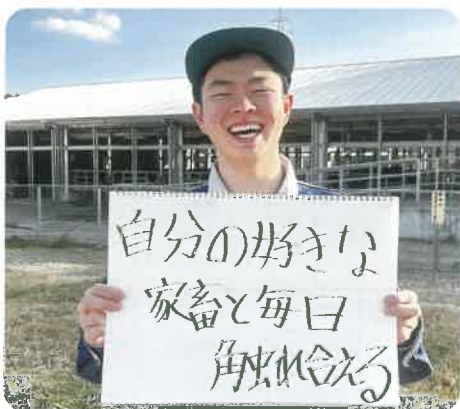 自分の好きな
家畜と毎日
触れ合える